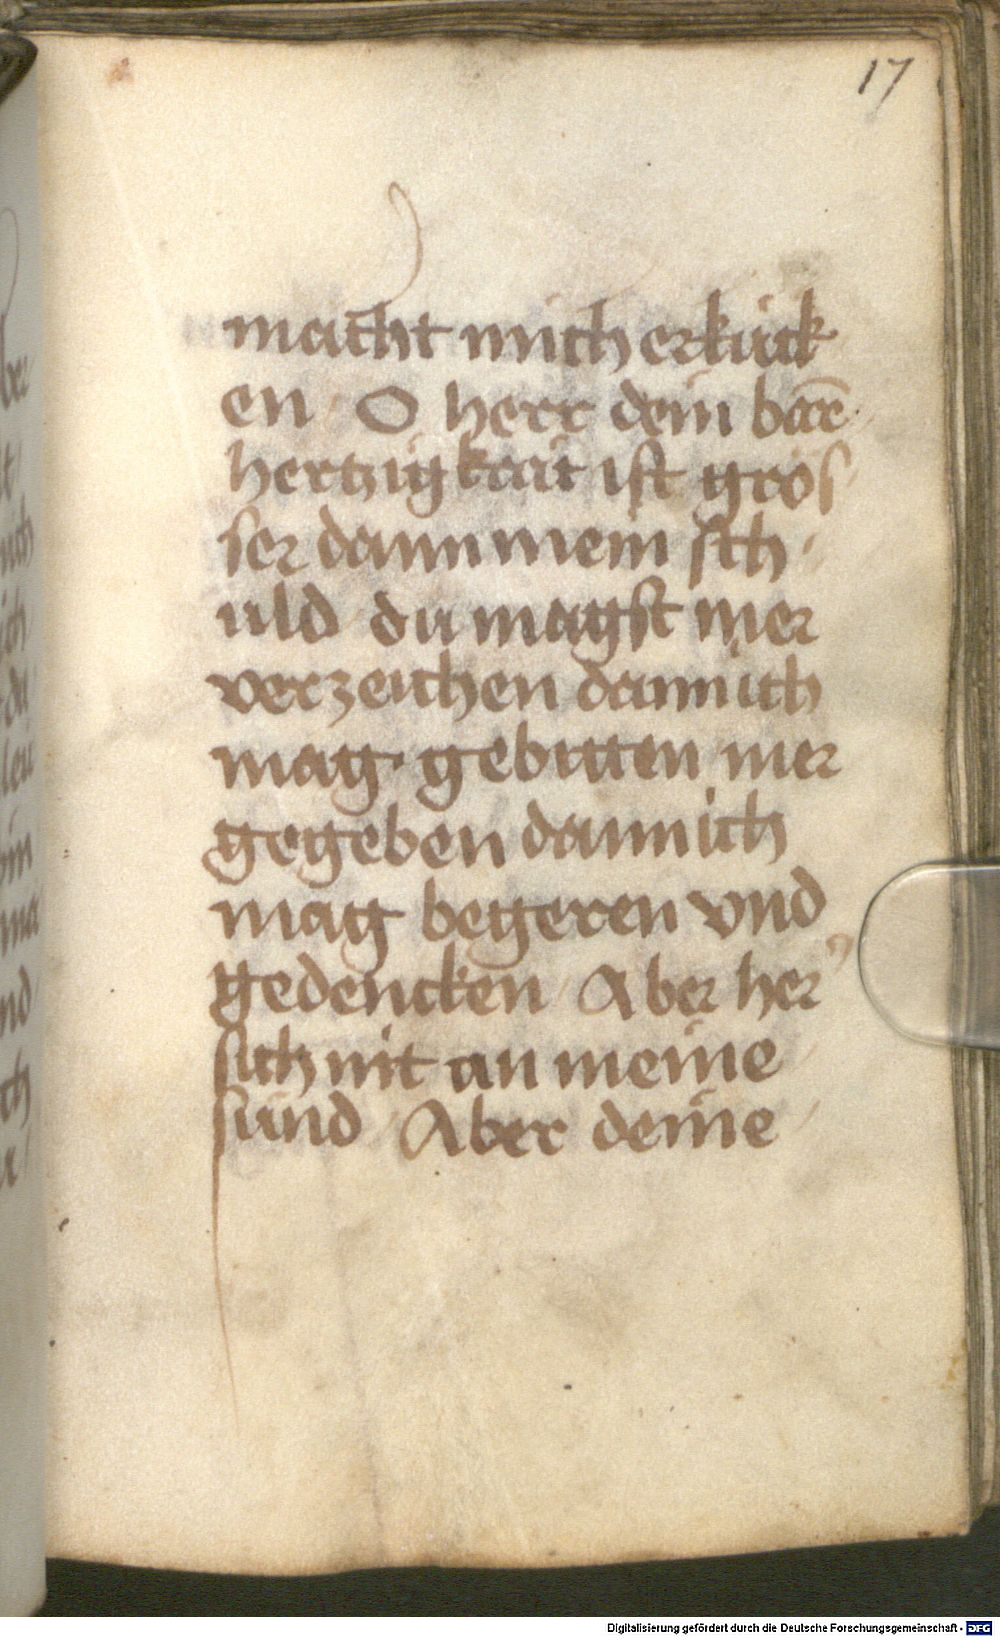 17
macht mich erkück
en O herr dein barē
hertzigkait ist grös
ser dann mein sch
uld du magst mer
verzeichen dann ich
mag gebitten mer
gegeben dann ich
mag begeren vnd
gedencken Aber her
sich nit an meine
sünd Aber deine
Digitalisierung gefördert durch die Deutsche Forschungsgemeinschaft - DFG